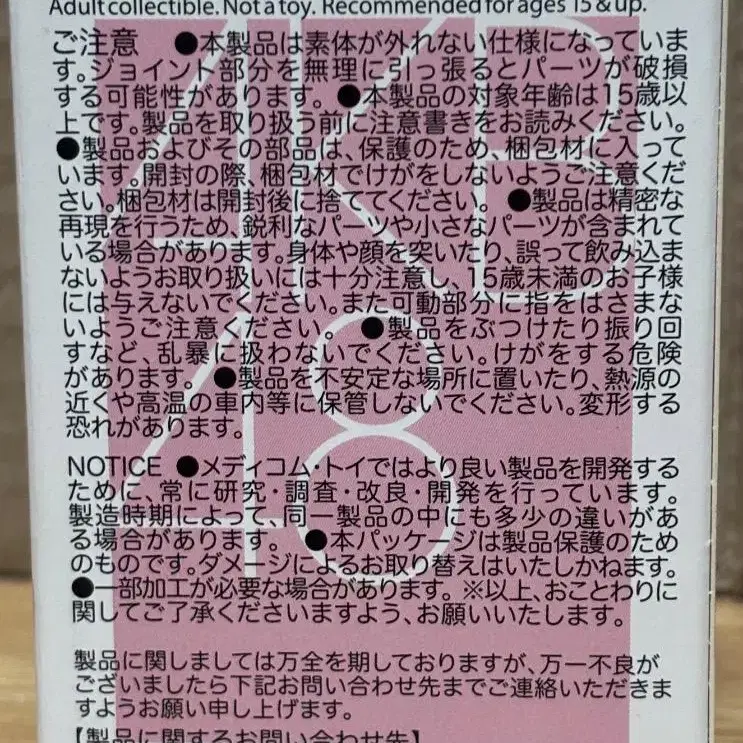 Adult collectible. Not a toy. Recommended for ages 15 & up.
ご注意 ●本製品は素体が外れない仕様になっていま
す。ジョイント部分を無理に引っ張るとパーツが破損
する可能性があります。●本製品の対象年齢は15歳以
上です。製品を取り扱う前に注意書きをお読みください。
●製品およびその部品は、保護のため、梱包材に入って
います。開封の際、梱包材でけがをしないようご注意くだ
さい。梱包材は開封後に捨ててください。 ●製品は精密な
再現を行うため、鋭利なパーツや小さなパーツが含まれて
いる場合があります。身体や顔を突いたり、誤って飲み込ま
ないようお取り扱いには十分注意し、15歳未満のお子様
には与えないでください。また可動部分に指をはさまな
いようご注意ください。 ●製品をぶつけたり振り回
すなど、乱暴に扱わないでください。けがをする危険
があります。 ●製品を不安定な場所に置いたり、熱源の
近くや高温の車内等に保管しないでください。変形する
恐れがあります。
NOTICE ●メディコム・トイではより良い製品を開発する
ために、常に研究・調査・改良・開発を行っています。
製造時期によって、同一製品の中にも多少の違いがあ
る場合があります。 ●本パッケージは製品保護のため
のものです。ダメージによるお取り替えはいたしかねます。
●一部加工が必要な場合があります。※以上、おことわりに
関してご了承くださいますよう、お願いいたします。
製品に関しましては万全を期しておりますが、万一不良が
ございましたら下記お問い合わせ先までご連絡いただきま
すようお願い申し上げます。
【製品に関するお問い合わせ先】
AKB
48